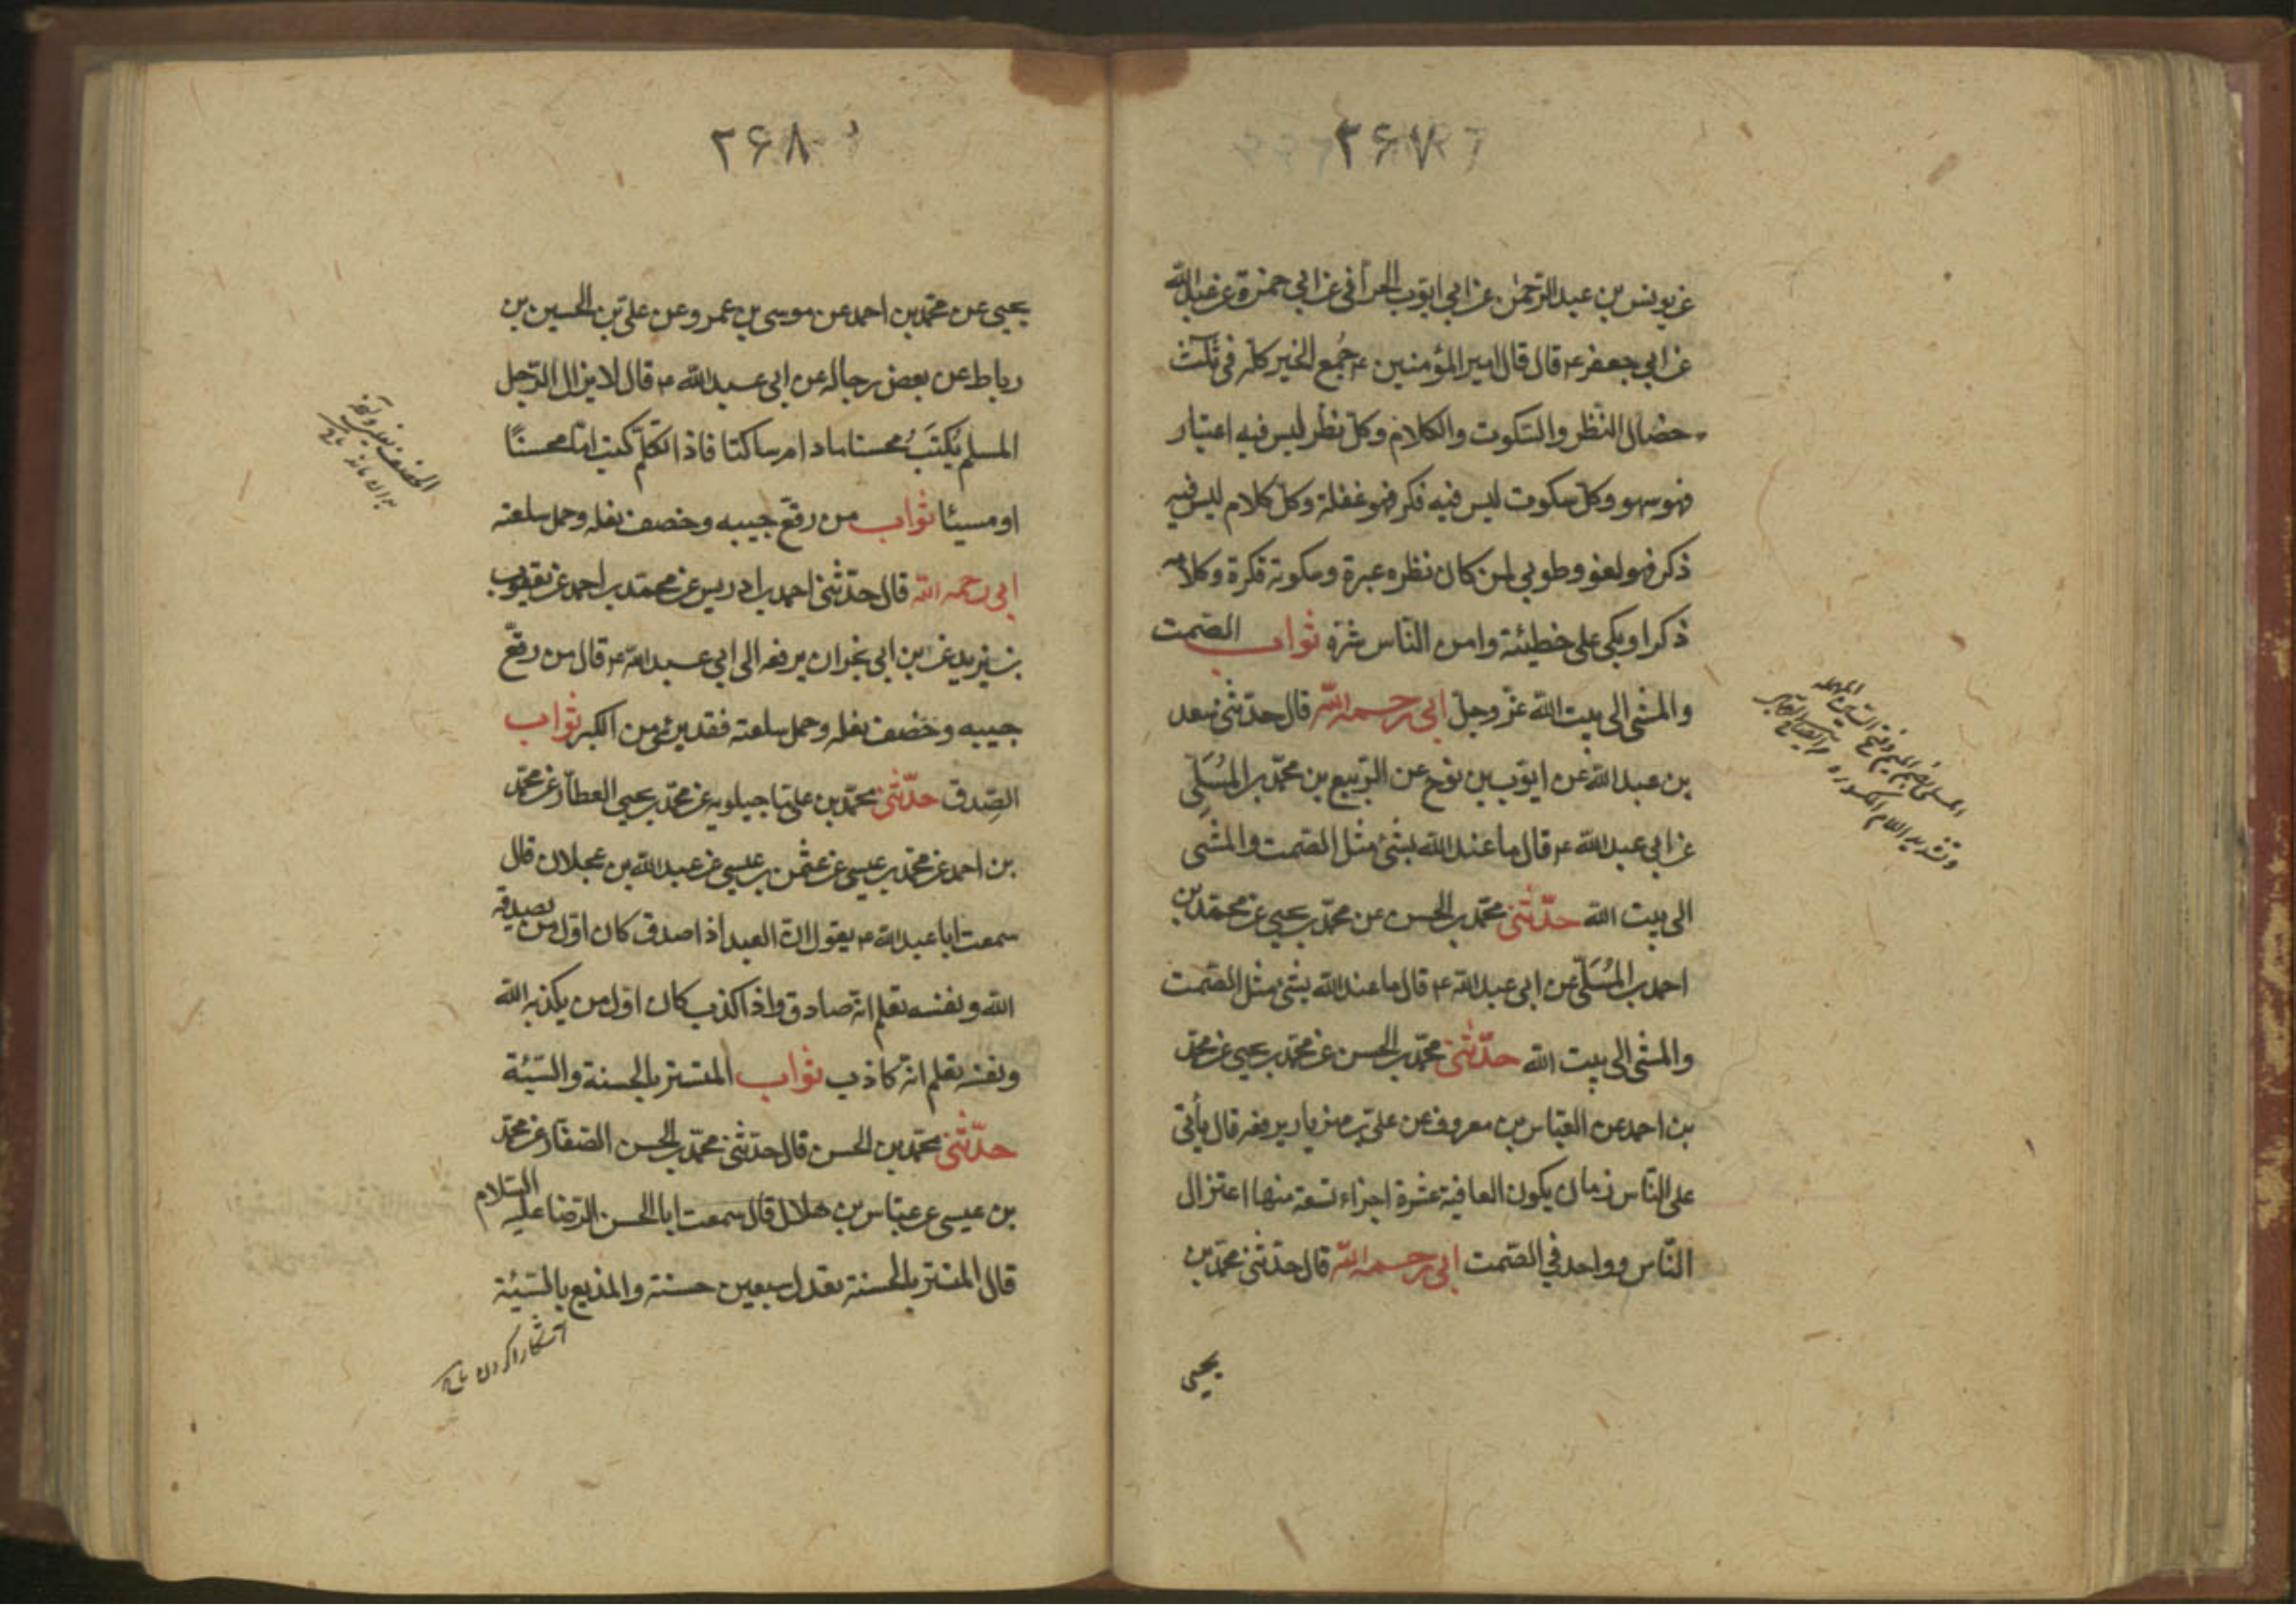 ۲۶۷
عن يونس بن عبد الرحمن عن ابي ايوب الحراني عن ابي حمزة عن عبد الله
عن ابي جعفر ع قال قال امير المؤمنين ع جُمع الخير كله في ثلث
خصال النظر والسكوت والكلام وكل نظر ليس فيه اعتبار
فهو سهو وكل سكوت ليس فيه فكر فهو غفلة وكل كلام ليس فيه
ذكر فهو لغو وطوبى لمن كان نظره عبرة وسكوته فكرة وكلامه
ذكرا وبكى على خطيئته وامن الناس شره ثواب الصمت
والمشى الى بيت الله عزّ وجلّ ابي رحمه الله قال حدّثني سعد
بن عبد الله عن ايوب بن نوح عن الربيع بن محمّد بن المُسَلّي
عن ابي عبد الله ع قال ما عند الله بشئ مثل الصمت والمشى
الى بيت الله حدّثني محمّد بن الحسن عن محمّد بن يحيى عن محمّد بن
احمد بن المُسَلّي عن ابي عبد الله ع قال ما عند الله بشئ مثل الصمت
والمشى الى بيت الله حدّثني محمّد بن الحسن عن محمّد بن يحيى عن محمّد
بن احمد عن العباس بن معروف عن علي بن مهزيار يرفعه قال يأتي
على الناس زمان يكون العافية عشرة اجزاء تسعة منها اعتزال
الناس وواحد في الصمت ابي رحمه الله قال حدّثني محمّد بن
يحيى
۲۶۸
يحيى عن محمّد بن احمد عن موسى بن عمر وعن علي بن الحسين بن
رباط عن بعض رجاله عن ابي عبد الله ع قال لا يزال الرّجل
المسلم يُكتَبُ محسنا مادام ساكتا فاذا تكلّم كتب امّا محسنًا
او مسيئا ثواب من رقع جيبه وخصف نعله وحمل سلعته
ابي رحمه الله قال حدّثني احمد بن ادريس عن محمّد بن احمد عن يعقوب
بن يزيد عن ابن ابي نجران يرفعه الى ابي عبد الله ع قال من رقّع
جيبه وخصف نعله وحمل سلعته فقد برئ من الكبر ثواب
الصِدق حدّثني محمّد بن علي ماجيلويه عن محمّد بن يحيى العطّار عن محمّد
بن احمد عن محمّد بن عيسى عن عثمن بن عيسى عن عبد الله بن عجلان قال
سمعت ابا عبد الله ع يقول انّ العبد اذا صدق كان اوّل من يصدقه
الله ونفسه تعلم انه صادق واذا كذب كان اوّل من يكذبه الله
ونفسه تعلم انه كاذب ثواب المستتر بالحسنة والسّيّئة
حدّثني محمّد بن الحسن قال حدّثني محمّد بن الحسن الصفّار عن محمّد
بن عيسى عن عبّاس بن هلال قال سمعت ابا الحسن الرّضا عليه السّلام
قال المستتر بالحسنة تعدل سبعين حسنة والمذيع بالسّيّئة